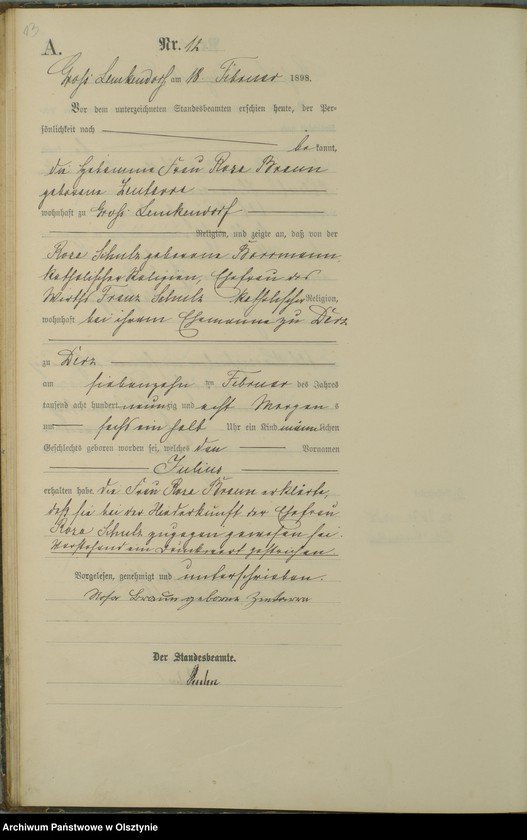 13
A.
Nr. 12
Groß Lemkendorf am 18. Februar 1898.
Vor dem unterzeichneten Standesbeamten erschien heute, der Per-
sönlichkeit nach
be kannt,
die Hebamme Frau Rosa Braun
geborene Zentarra
wohnhaft zu Groß Lemkendorf
Religion, und zeigte an, daß von der
Rosa Schulz geborene Borrmann,
katholischer Religion, Ehefrau des
Wirths Franz Schulz katholischer Religion,
wohnhaft bei ihrem Ehemanne zu Derz
zu Derz
am siebenzehn ten Februar des Jahres
tausend acht hundert neunzig und acht Morgen s
um sechs ein halb Uhr ein Kind männlichen
Geschlechts geboren worden sei, welches den Vornamen
Julius
erhalten habe. Die Frau Rosa Braun erklärte,
daß sie bei der Niederkunft der Ehefrau
Rosa Schulz zugegen gewesen sei.
Vorstehend ein Druckwort gestrichen
Vorgelesen, genehmigt und unterschrieben.
Rosa Braun geborne Zentarra
Der Standesbeamte.
Archiwum Państwowe w Olsztynie